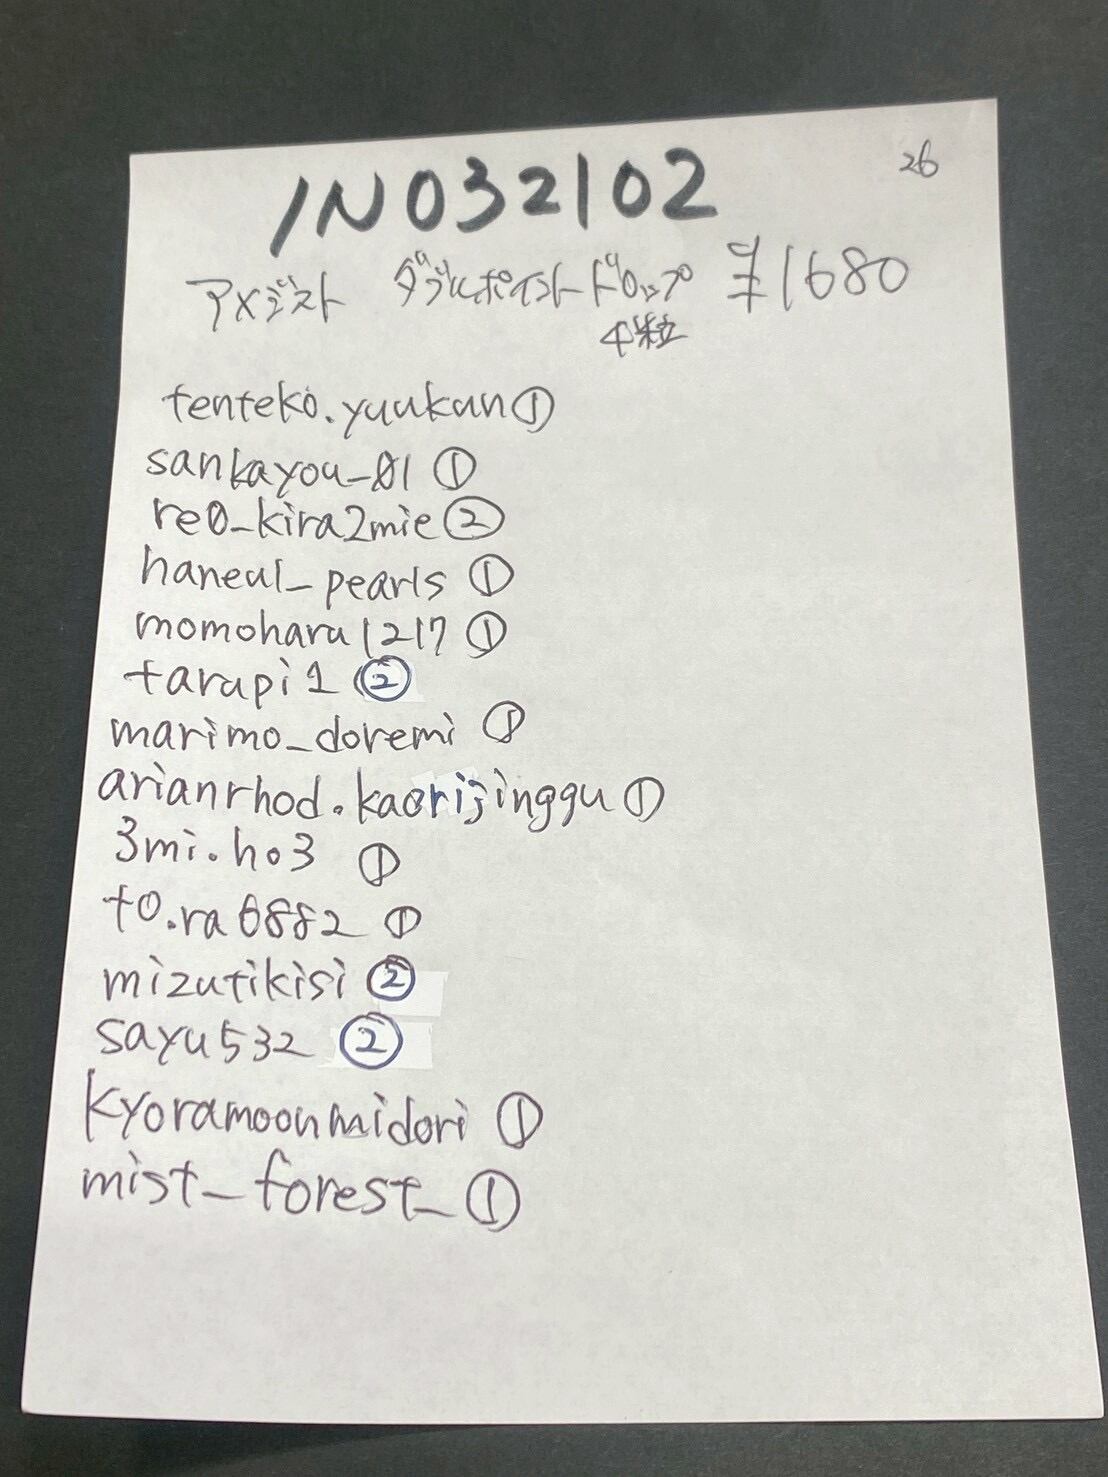 26
IN032102
アメジスト ダブルポイントドロップ ¥1680
中粒
tenteko.yuukun①
sankayou_01 ①
re0_kira2mie②
haneul_pearls ①
momoharu1217 ①
tarupi1 ②
marimo_doremi ①
arianrhod.kaorijinggu ①
3mi.ho3 ①
to.ra6882 ①
mizutikisi ②
sayu532 ②
kyoramoonmidori ①
mist_forest_ ①